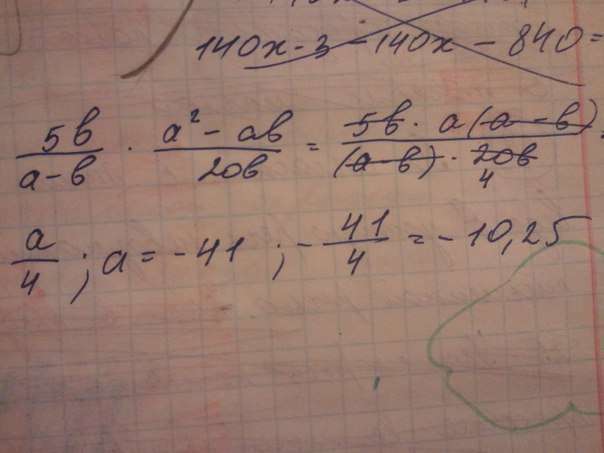 140x - 3 - 140x - 840 =
5b/(a-b) · (a² - ab)/20b = (5b · a(a-b))/((a-b) · 20b) =
4
a/4 ; a = -41 ; -41/4 = -10,25